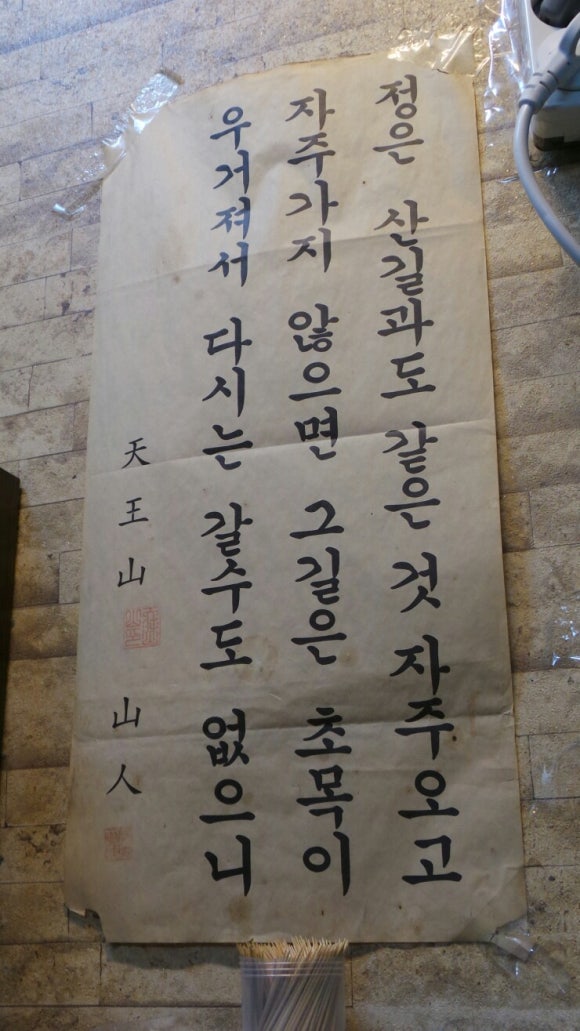 정은 산길과도 같은 것 자주오고
자주가지 않으면 그길은 초목이
우거져서 다시는 갈수도 없으니
天王山 山人